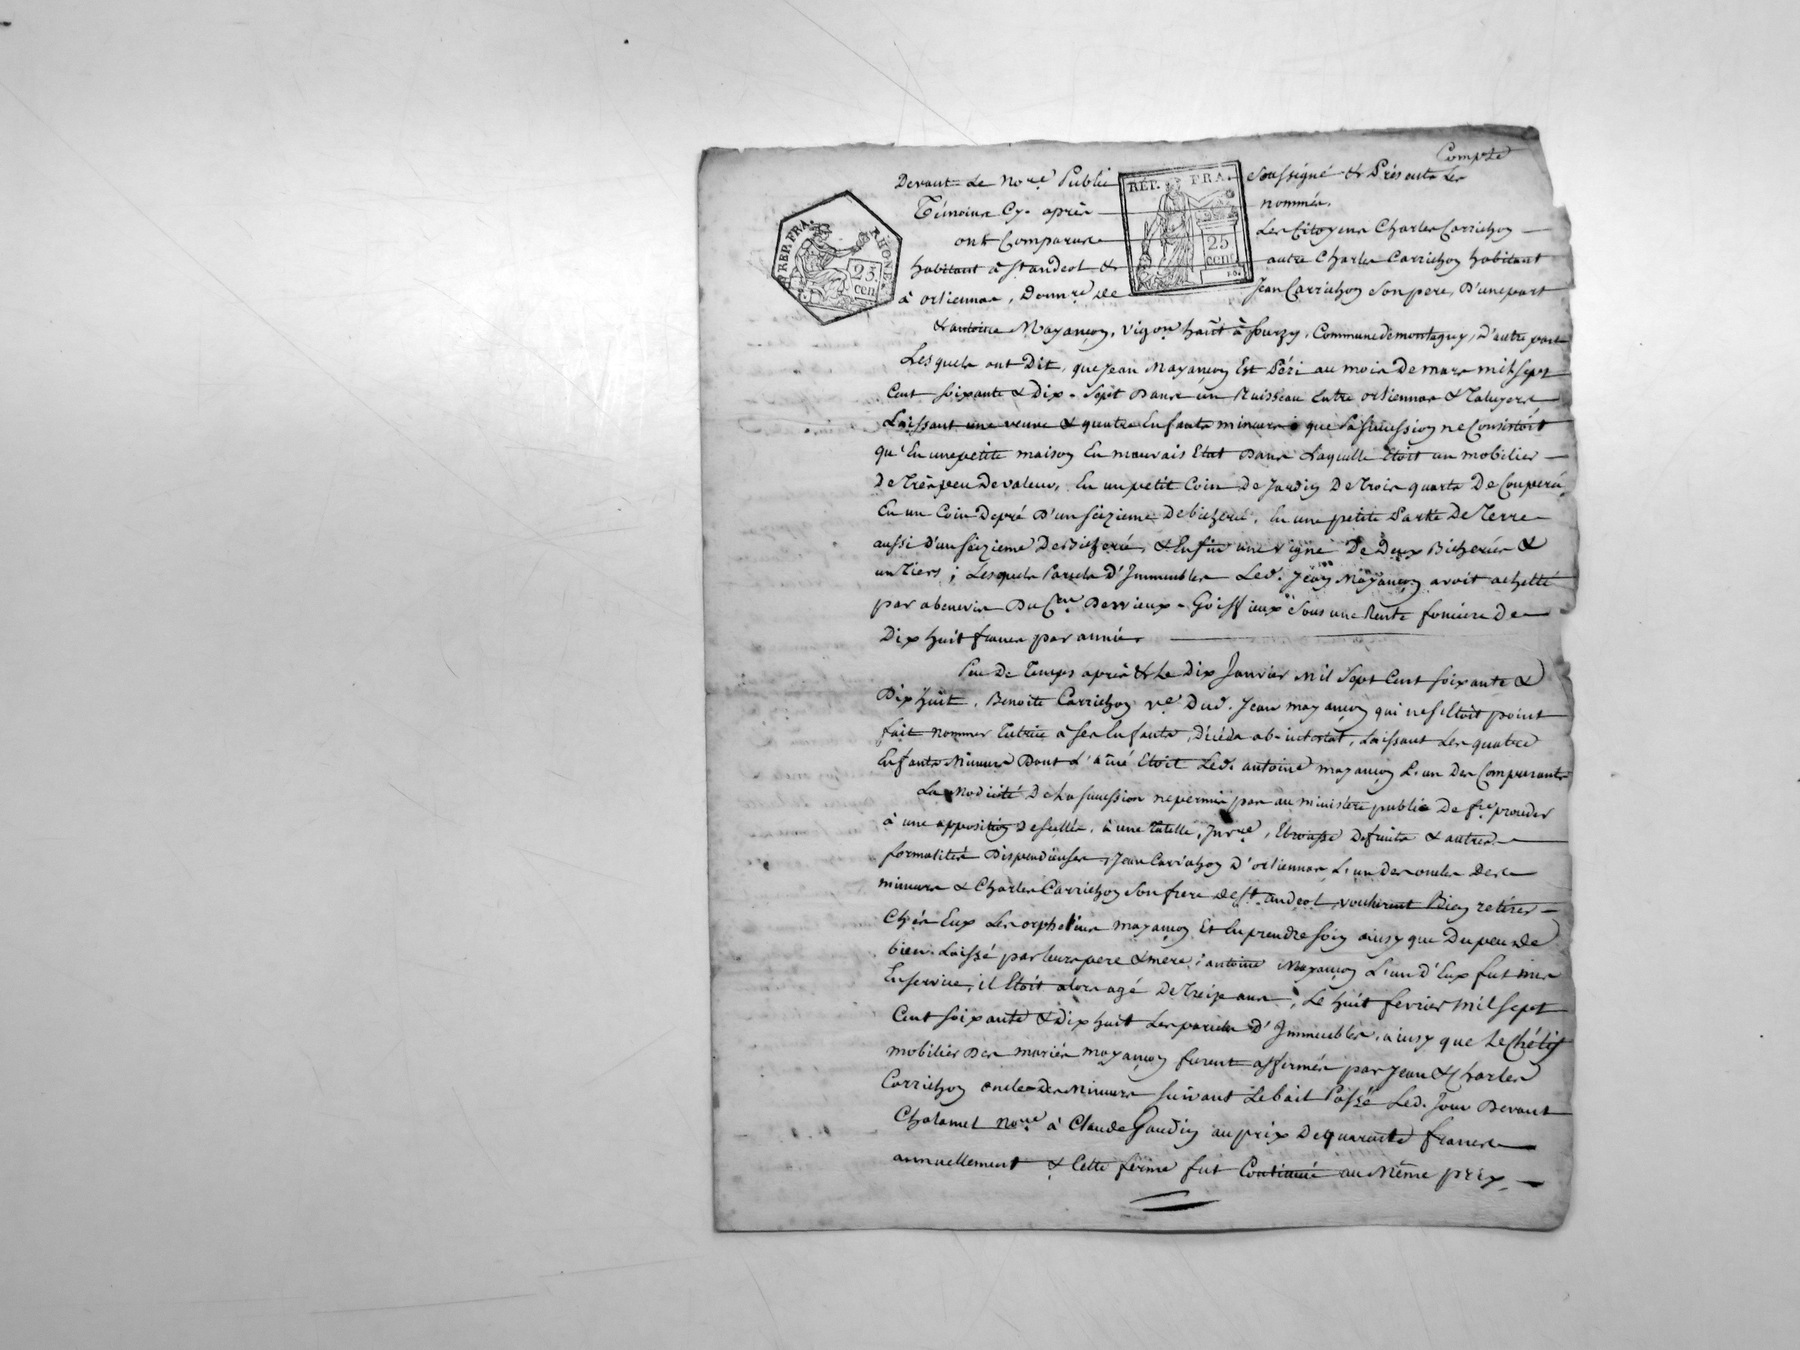 Compte
Devant le No.re Public soussigné & Présents les
Témoins Cy-après nommés,
ont Comparus Les Citoyens Charles Carrichon
habitant à St andeol & autre Charles Carrichon habitant
à orlienas, Donn.re de Jean Carrichon son pere, D'une part
REP. FRA. RHONE. 25 cen.
RÉP. FRA. 25 cen.
& antoine Mayançon, vigon habit à sourzy, Commune de montagny, D'autre part
Lesquels ont Dit, que Jean Mayançon Est Péri au mois De mars mil sept
Cent soixante & Dix-Sept Dans un Ruisseau Entre orlienas & Taluyers
Laissant une veuve & quatre Enfants mineurs que sa succession ne Consistoit
qu'En une petite maison En mauvais Etat Dans Laquelle étoit un mobilier
De Très peu De valeur, En un petit Coin De Jardin De Trois quarts De Couperé,
En un Coin De pré D'un seizieme De bicheré, En une petite Partie De Terre
aussi D'un seizieme De Bicherée, & Enfin une vigne De Deux Bicherées &
un Tiers ; Lesquels Parcels D'Immeubles Led. Jean Mayançon avoit achetté
par abenevis Du C.en Dervieux-Goiffieux sous une Rente fonciere De
Dix huit francs par année.
Peu De Temps après & Le Dix Janvier Mil Sept Cent soixante &
Dix huit, Benoite Carrichon v.e Dud. Jean mayançon qui ne s'Etoit point
fait nommer Tutrice à ses Enfants, Décéda ab-intestat, Laissant Les quatre
Enfants Mineurs Dont L'aîné Etoit Led. antoine mayançon L'un Des Comparants
La Modicité De La succession ne permis pas au ministere public De f.re proceder
à une apposition De scellés, à une Tutelle, Inv.re, Etrousse De fruits & autres
formalités Dispendieuses, Jean Carrichon D'orlienas L'un Des oncles Des
mineurs & Charles Carrichon son frere De St. andeol, voulurent Bien retirer
Chés Eux Les orphelins mayançon Et En prendre soin ainsy que Du peu De
bien Laissé par leurs pere & mere ; antoine Mayançon L'un d'Eux fut mis
En service, il Etoit alors agé De Treize ans, Le huit fevrier mil sept
Cent soixante & Dix huit Les parcels D'Immeubles, ainsy que Le Chétif
mobilier Des mariés mayançon furent affermés par Jean & Charles
Carrichon oncles Des Mineurs suivant Le bail Passé Led. Jour Devant
Chalamel No.re à Claude Gaudin au prix De quarante francs
annuellement & Cette ferme fut Continuée au Même prix,